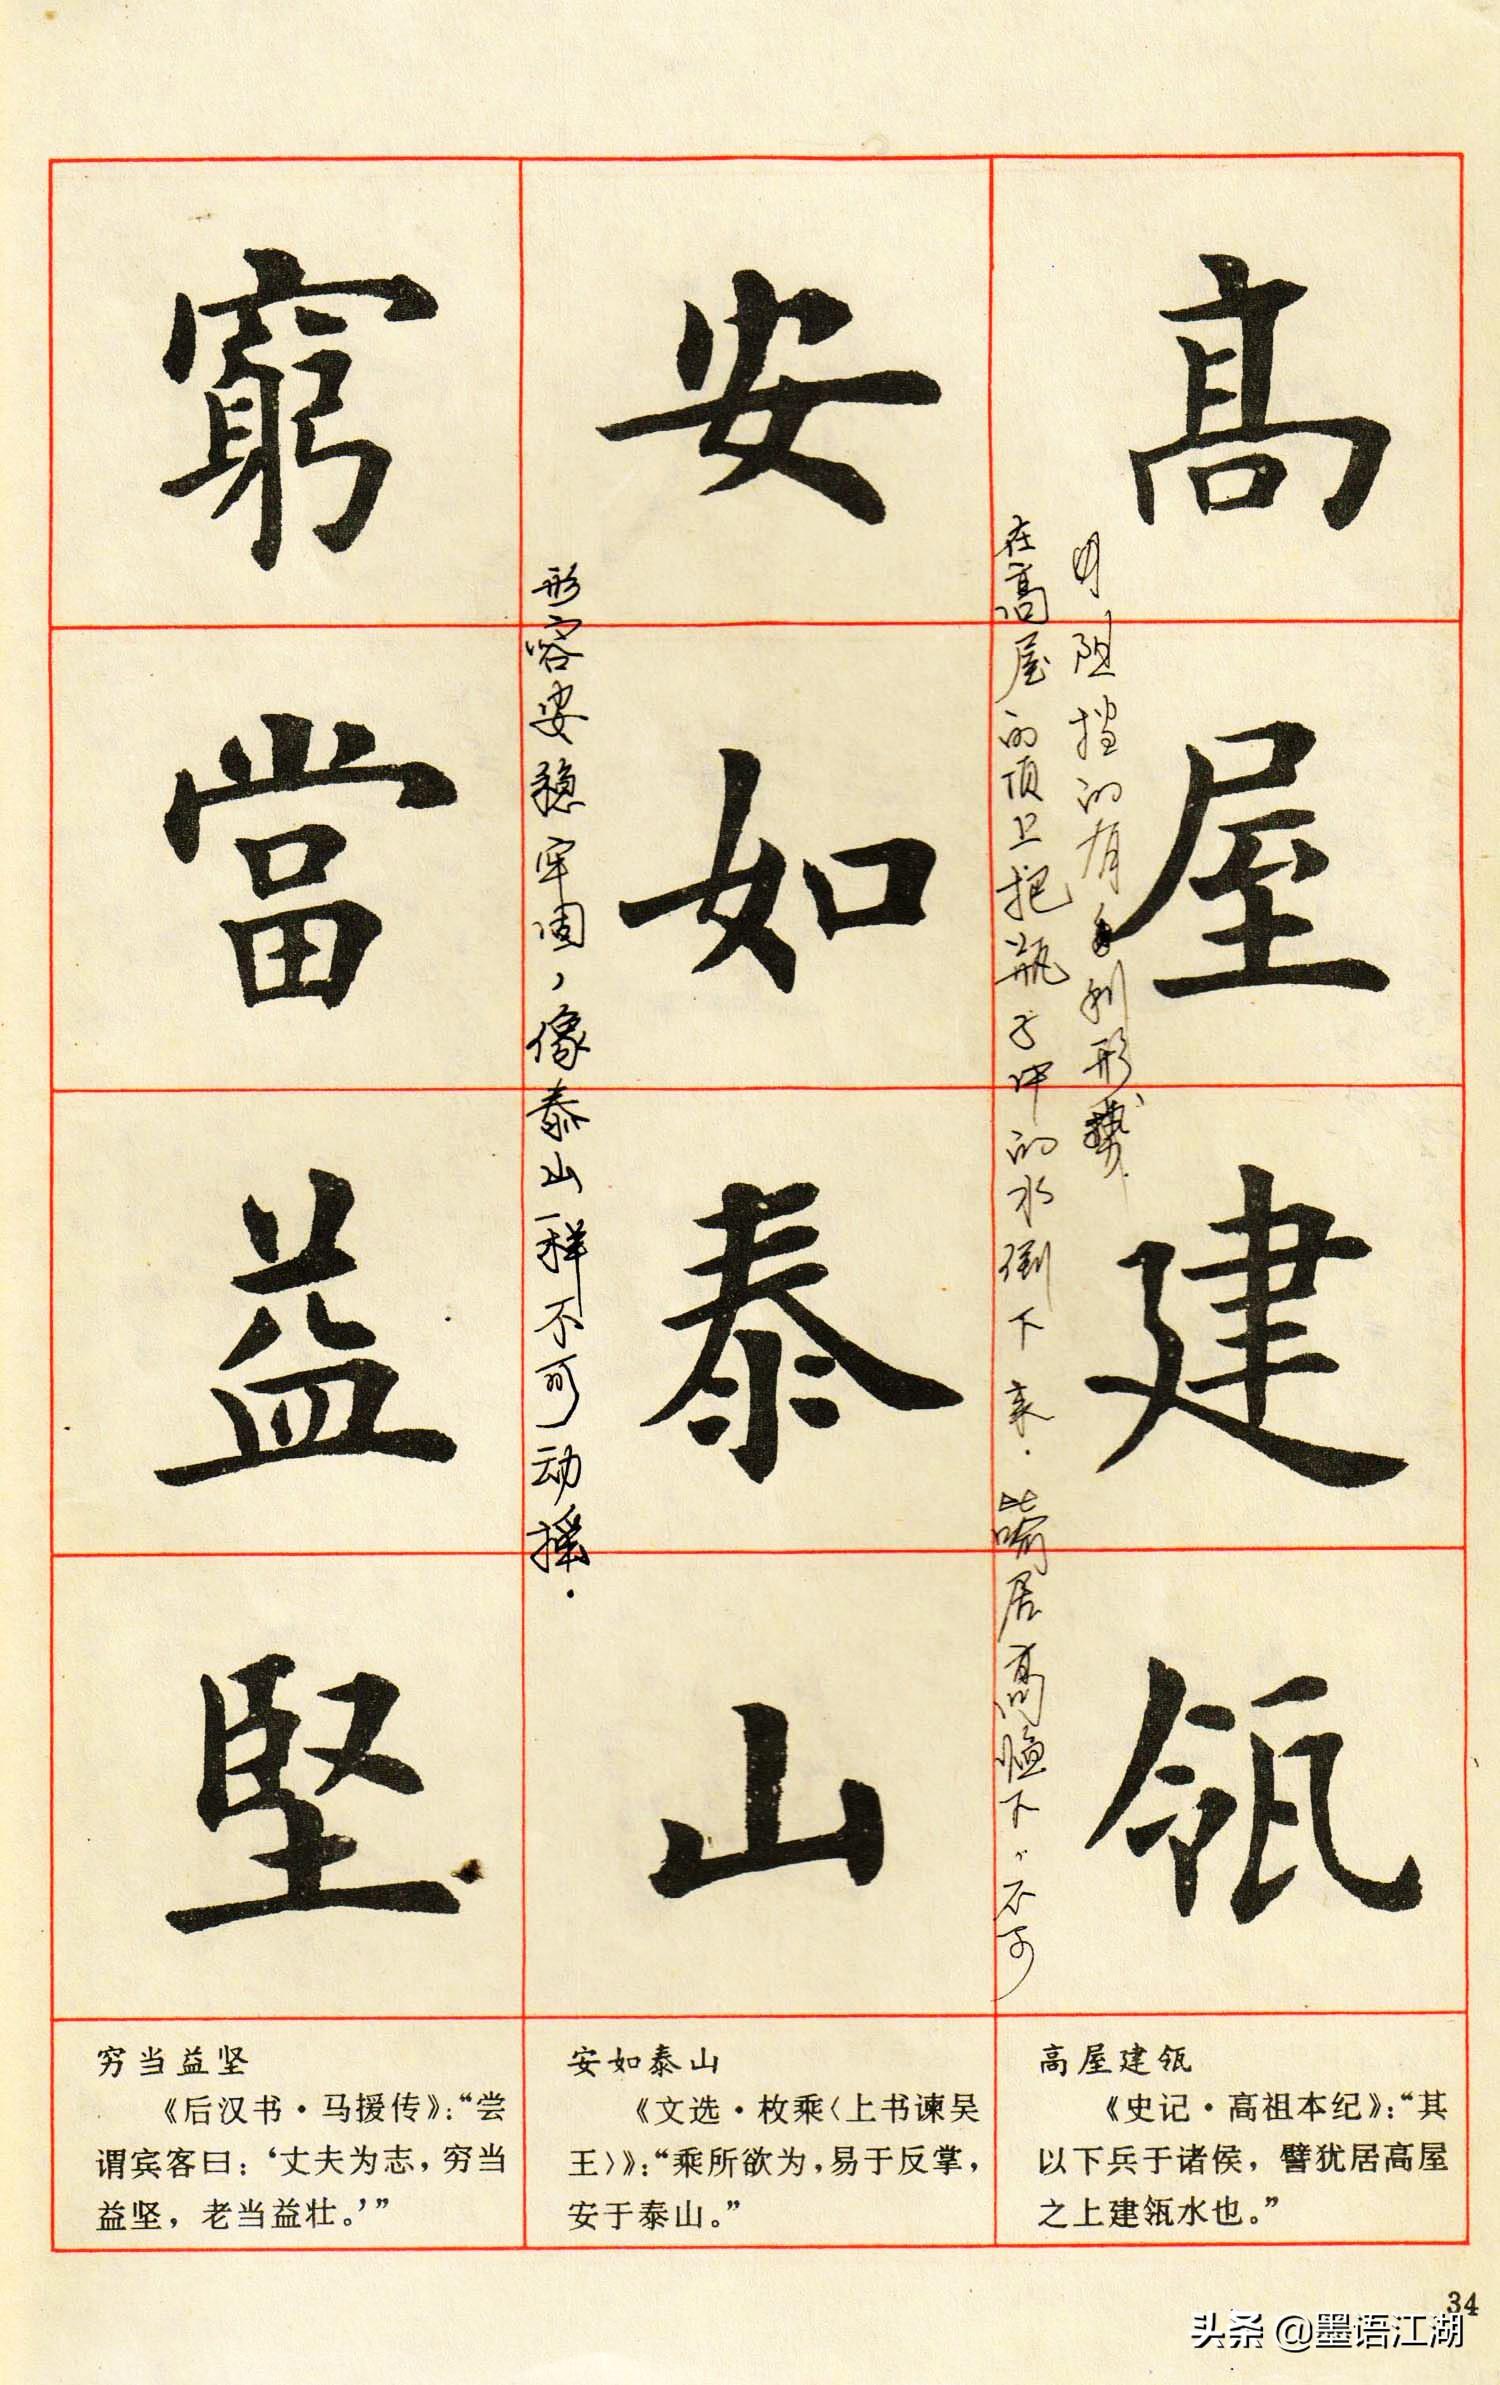 高屋建瓴
在高屋的顶上把瓶子中的水倒下来.比喻居高临下,不可
阻挡的有利形势.
安如泰山
形容安稳牢固,像泰山一样不可动摇.
窮當益堅
高屋建瓴
《史记·高祖本纪》:“其
以下兵于诸侯,譬犹居高屋
之上建瓴水也。”
安如泰山
《文选·枚乘〈上书谏吴
王〉》:“乘所欲为,易于反掌,
安于泰山。”
穷当益坚
《后汉书·马援传》:“尝
谓宾客曰:‘丈夫为志,穷当
益坚,老当益壮。’”
34
头条 @墨语江湖